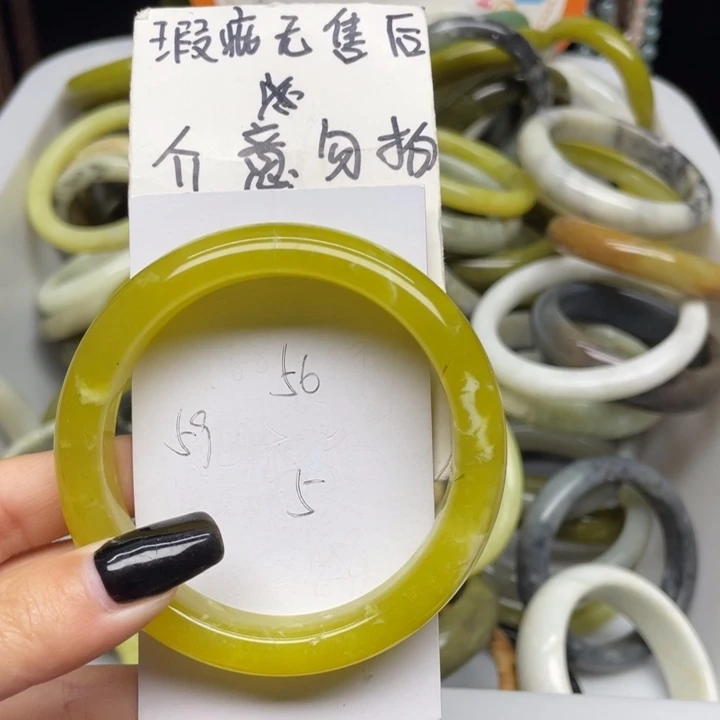 瑕疵无售后
介意勿拍
56
59
5